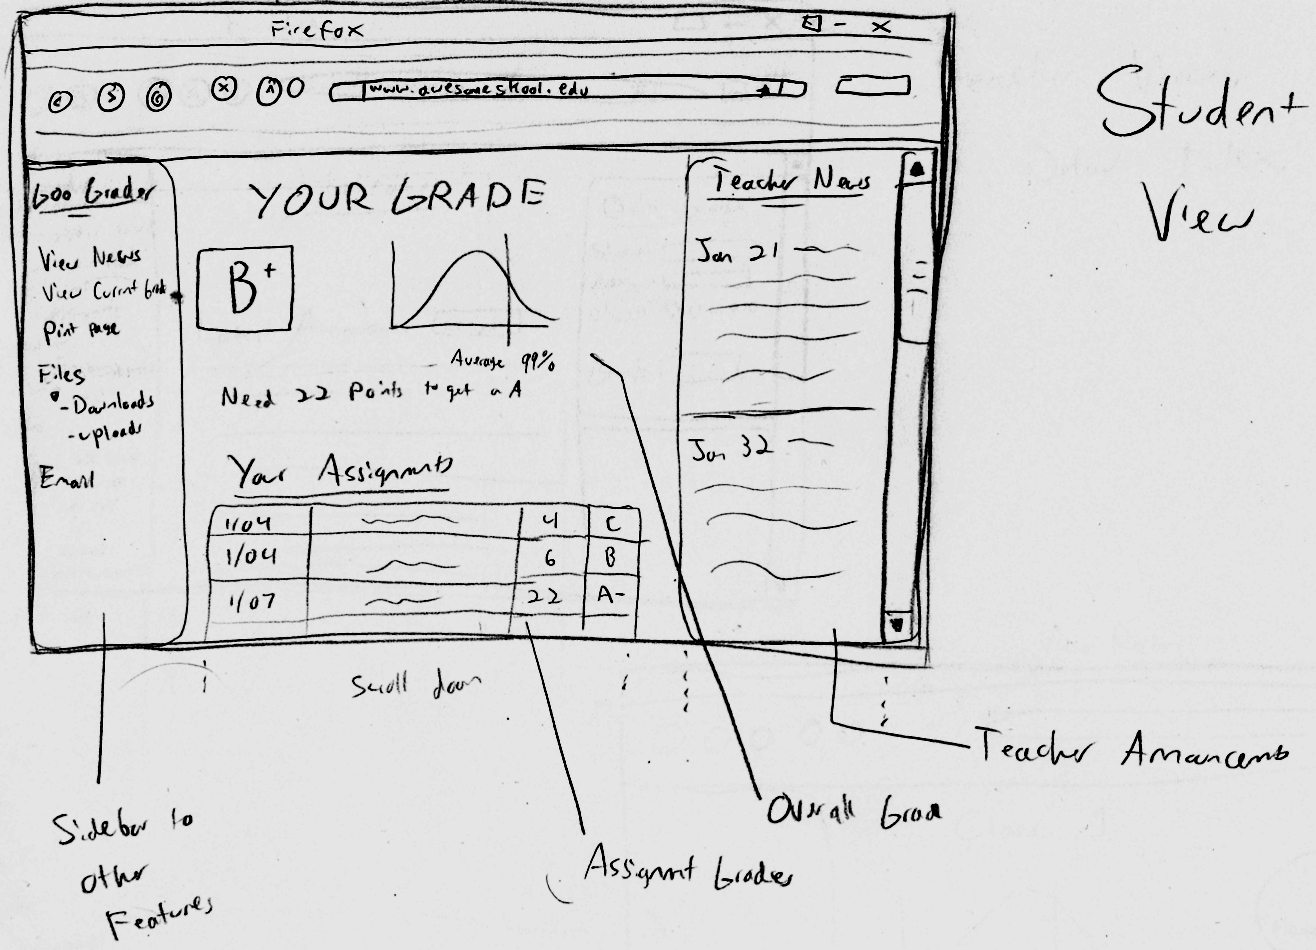 Firefox
www.awesomeskool.edu
Student
View
Goo Grader
View News
View Current Grade
Print Page
Files
- Downloads
- uploads
Email
YOUR GRADE
B+
Average 99%
Need 22 Points to get a A
Your Assignments
1/04 4 C
1/04 6 B
1/07 22 A-
Teacher News
Jan 21
Jan 32
Scroll down
Sidebar to
other
Features
Assignment Grades
Overall Grade
Teacher Announcements